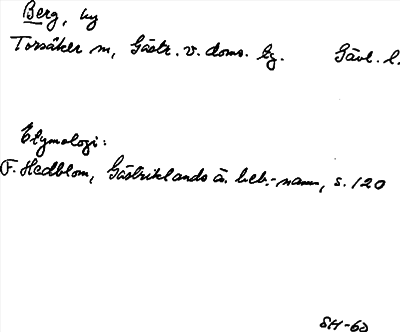 Berg, by
Torsåker sn, Gästr. v. doms. hg. Gävl. l.
Etymologi:
F. Hedblom, Gästriklands ä. beb.-namn, s. 120
SH-60